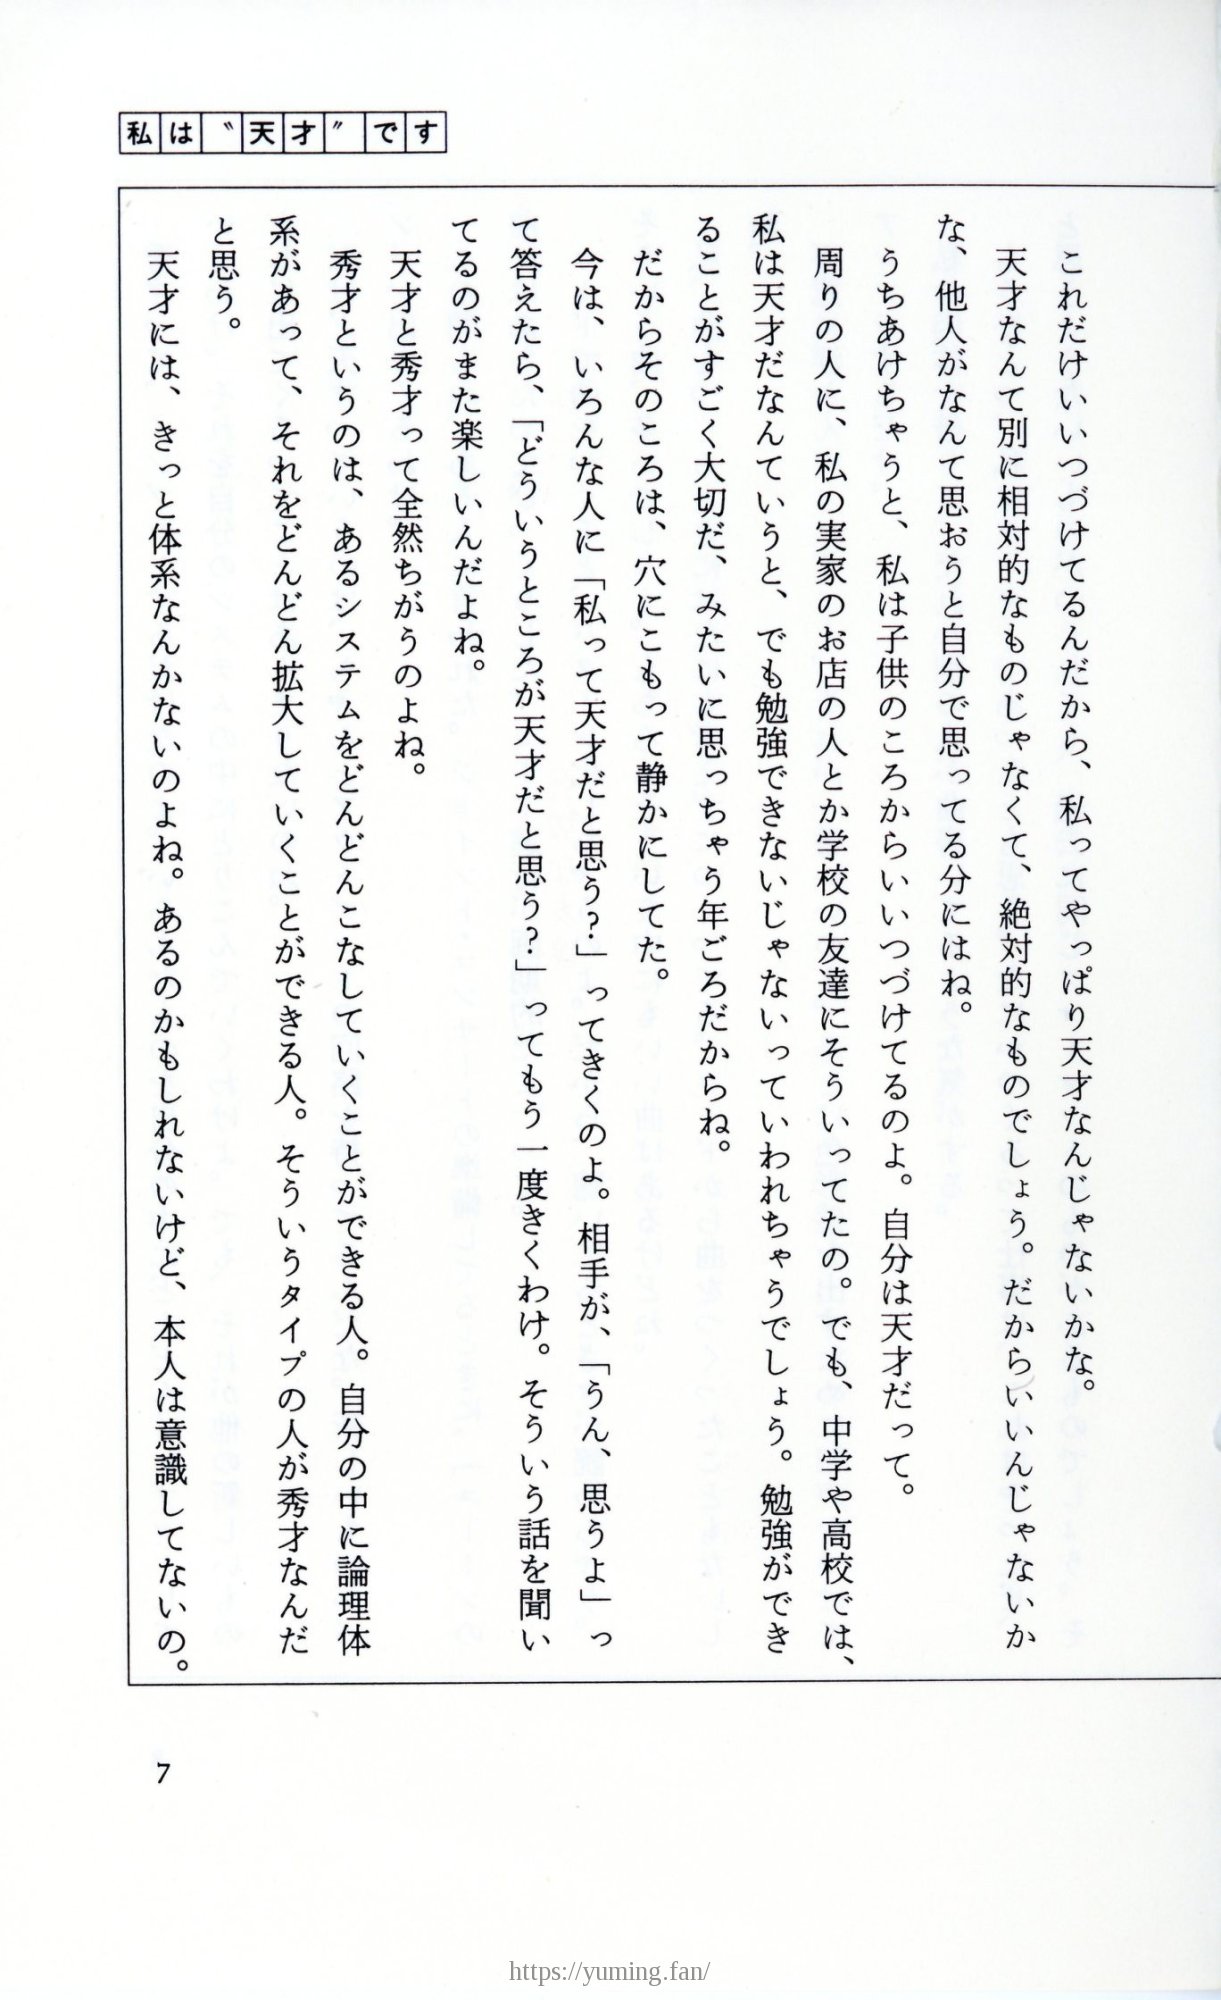 私は〝天才〟です
これだけいいつづけてるんだから、私ってやっぱり天才なんじゃないかな。
天才なんて別に相対的なものじゃなくて、絶対的なものでしょう。だからいいんじゃないか
な、他人がなんて思おうと自分で思ってる分にはね。
うちあけちゃうと、私は子供のころからいいつづけてるのよ。自分は天才だって。
周りの人に、私の実家のお店の人とか学校の友達にそういってたの。でも、中学や高校では、
私は天才だなんていうと、でも勉強できないじゃないっていわれちゃうでしょう。勉強ができ
ることがすごく大切だ、みたいに思っちゃう年ごろだからね。
だからそのころは、穴にこもって静かにしてた。
今は、いろんな人に「私って天才だと思う?」ってきくのよ。相手が、「うん、思うよ」っ
て答えたら、「どういうところが天才だと思う?」ってもう一度きくわけ。そういう話を聞い
てるのがまた楽しいんだよね。
天才と秀才って全然ちがうのよね。
秀才というのは、あるシステムをどんどんこなしていくことができる人。自分の中に論理体
系があって、それをどんどん拡大していくことができる人。そういうタイプの人が秀才なんだ
と思う。
天才には、きっと体系なんかないのよね。あるのかもしれないけど、本人は意識してないの。
7
https://yuming.fan/